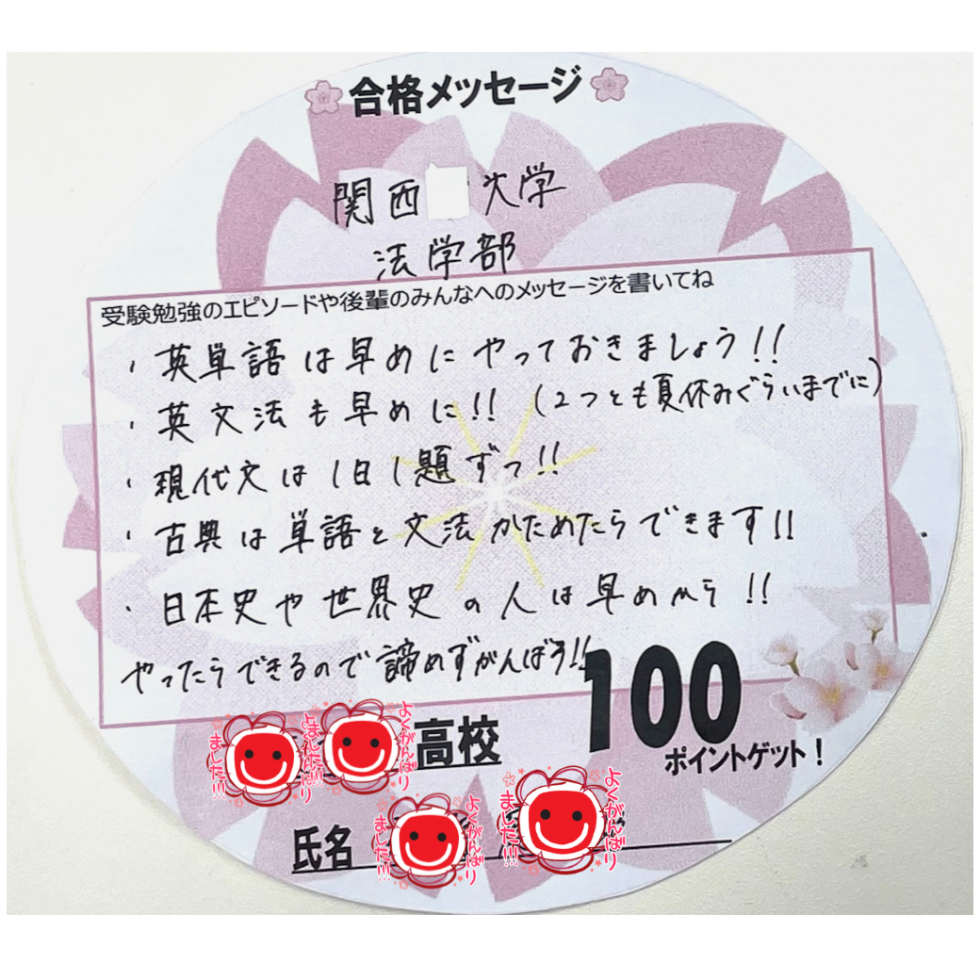 合格メッセージ
関西 大学
法学部
受験勉強のエピソードや後輩のみんなへのメッセージを書いてね
・英単語は早めにやっておきましょう!!
・英文法も早めに!! (2つとも夏休みぐらいまでに)
・現代文は1日1題ずつ!!
・古典は単語と文法かためたらできます!!
・日本史や世界史の人は早めから!!
やったらできるので諦めずがんばろう!!
100
ポイントゲット!
高校
よくがんばり
ました!!!
よくがんばり
ました!!!
氏名
よくがんばり
ました!!!
よくがんばり
ました!!!